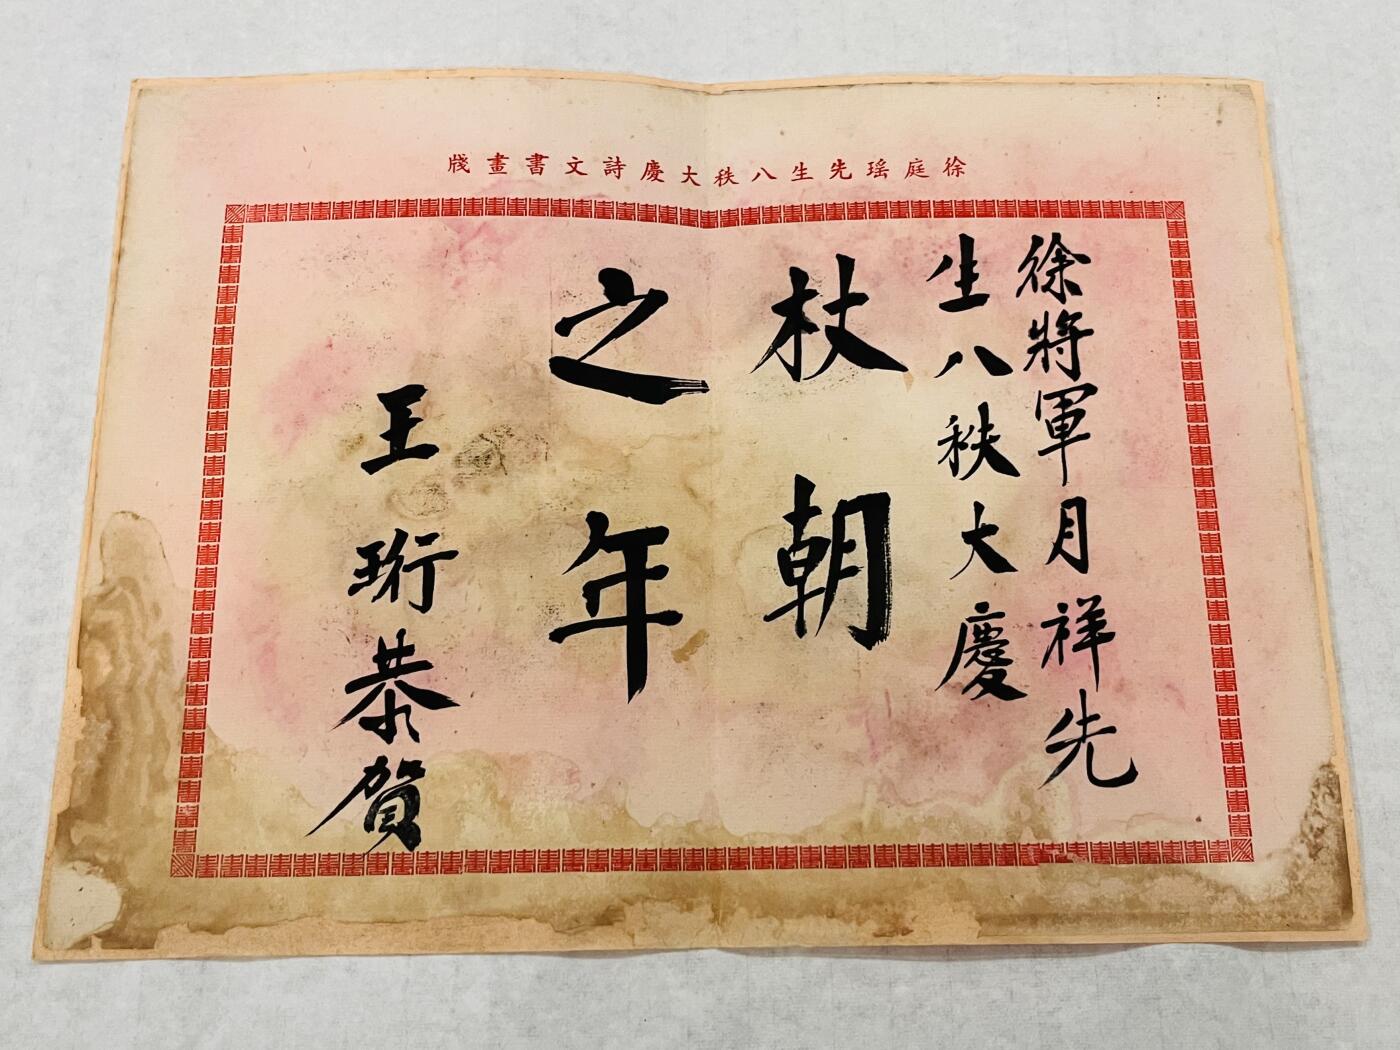 徐庭瑤先生八秩大慶詩文書畫牋
徐將軍月祥先
生八秩大慶
杖朝
之年
王珩恭賀